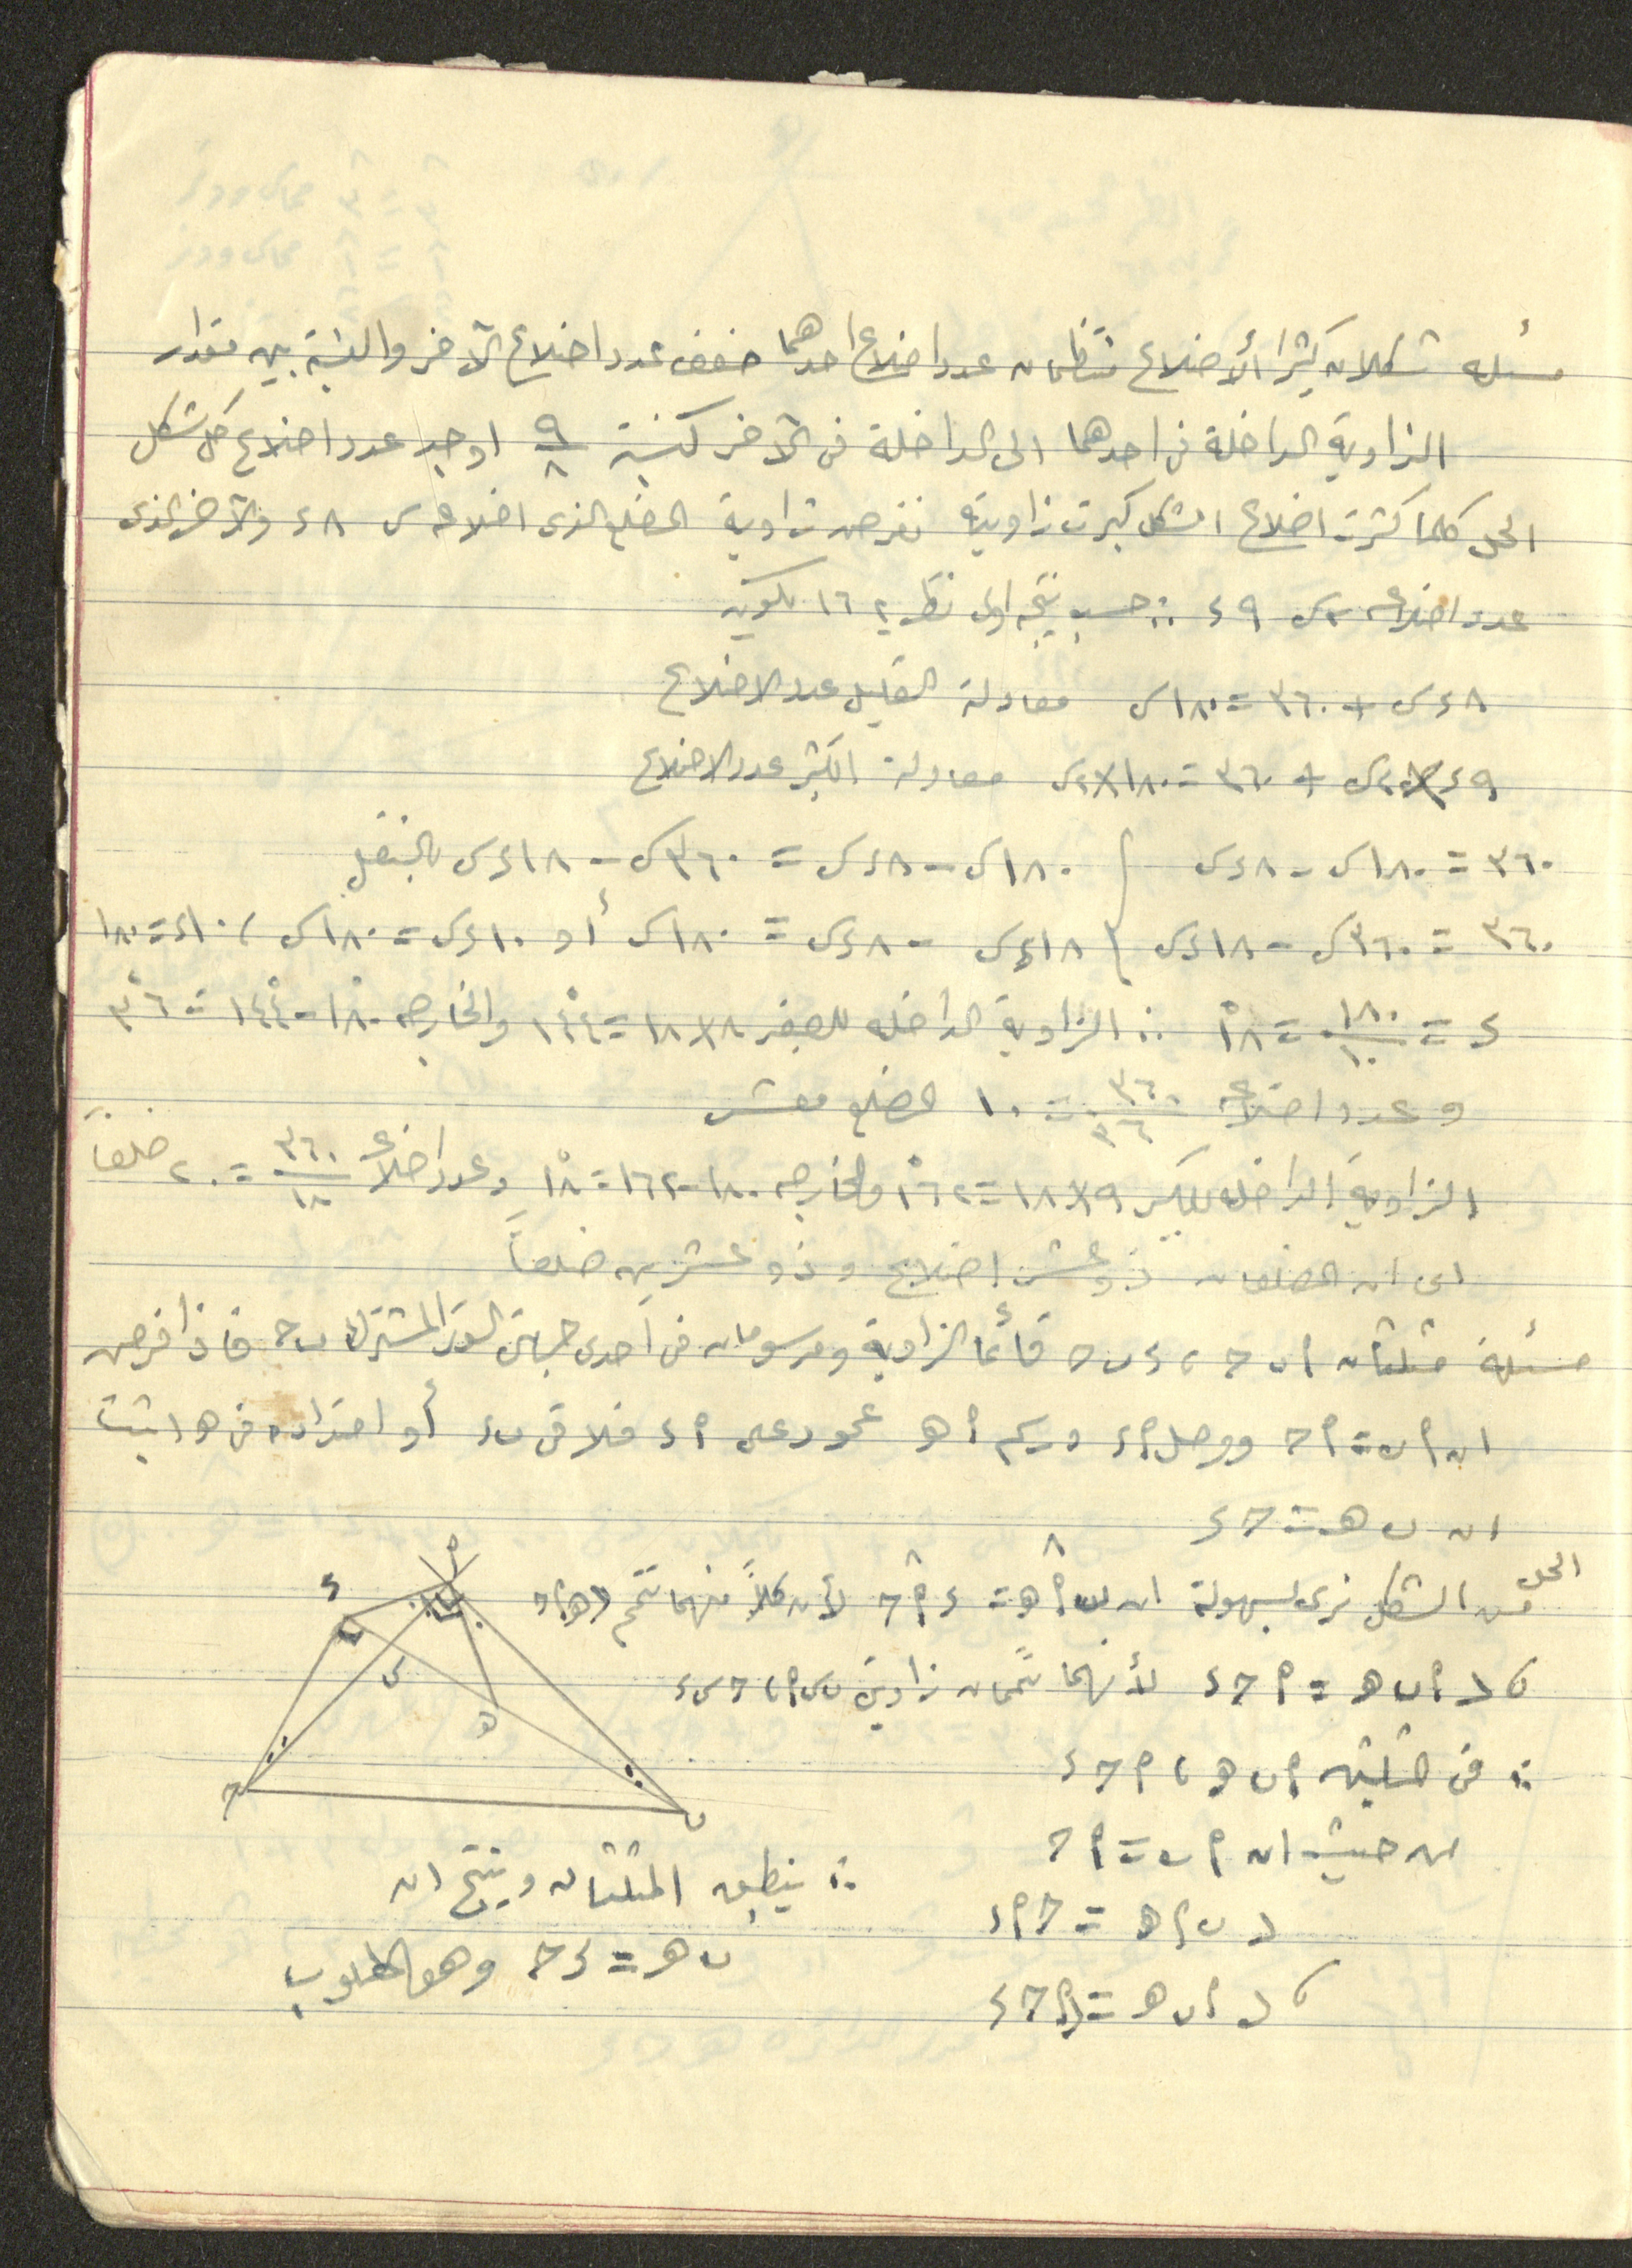 مسئله شكلان كثيرا الأضلاع منتظمان عدد اضلاع احدهما ضعف عدد اضلاع الآخر والنسبة بين مقدار
الزاوية الداخلة في احدهما الى الداخلة في الآخر كنسبة ٩/٨ اوجد عدد اضلاع كل شكل
الحل كلما كثرت اضلاع الشكل كبرت زاويته نفرض زاوية المضلع الذي اضلاعه س ٨ء والآخر الذي
عدد اضلاعه ٢س ٩ء ∴ حسب نتيجة اولى نظرية ١٦ يكون
٨ءس + ٣٦٠ = ١٨٠س معادلة القليل عدد الاضلاع
٩ء×٢س + ٣٦٠ = ١٨٠×٢س معادلة الكثير عدد الاضلاع
٣٦٠ = ١٨٠س - ٨ءس } ١٨٠س - ٨ءس = ٣٦٠س - ١٨ءس بالنقل
٣٦٠ = ٣٦٠س - ١٨ءس } ١٨ءس - ٨ءس = ١٨٠س أو ١٠ءس = ١٨٠س ، ١٠ء = ١٨٠
ء = ١٨٠/١٠ = ١٨° ∴ الزاوية الداخله للصغير ٨×١٨ = ١٤٤° والخارجه ١٨٠ - ١٤٤° = ٣٦°
وعدد اضلاعه ٣٦٠/٣٦ = ١٠ المضلع معشر
الزاوية الداخله للكبير ٩×١٨ = ١٦٢° والخارجه ١٨٠ - ١٦٢ = ١٨° وعدد اضلاعه ٣٦٠/١٨ = ٢٠ ضلعاً
اى ان المضلعان ذو عشر اضلاع وذو عشرين ضلعاً
مسئلة مثلثان ا ب ح ، ء ب ح قائما الزاوية ومرسومان في احدى جهتى الوتر المشترك ب ح فاذا فرض
ان ا ب = ا ح ووصل ا ء ورسم ا ه عمود على ا ء فلاقى ب ء أو امتداده في ه اثبت
ان ب ه = ح ء
الحل من الشكل نرى بسهولة ان ب ا ه = ء ا ح لأن كلاً منهما تتمم ه ا ح
، د ا ب ه = ا ح ء لأنهما تتممان زاويتى ب س ا ، ح س ء
∴ فى المثلثين ا ب ه ، ا ح ء
من حيث ان ا ب = ا ح
د ب ا ه = ح ا ء
، د ا ب ه = ا ح ء
∴ ينطبق المثلثان وينتج ان
ب ه = ء ح وهو المطلوب
ا
ء
س
ه
ح
ب